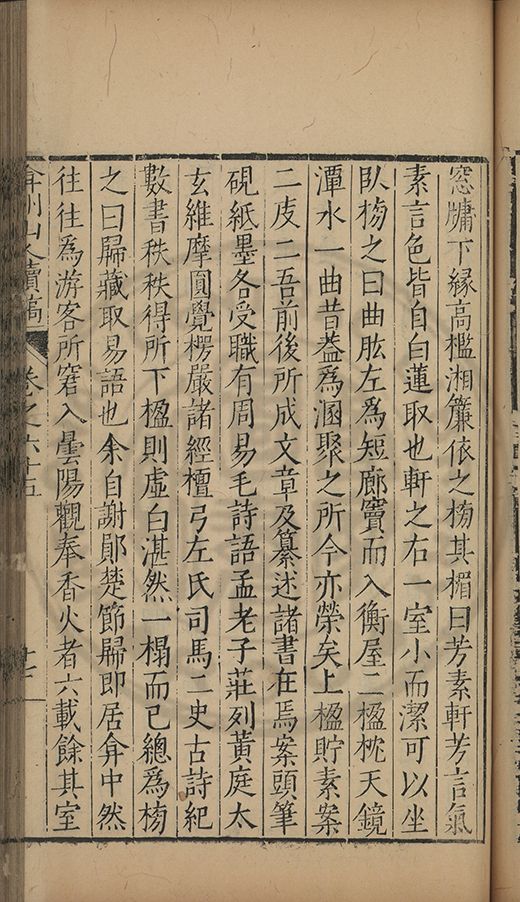 窓牗下緣高檻湘簾依之榜其楣曰芳素軒芳言氣
素言色皆自白蓮取也軒之右一室小而潔可以坐
臥榜之曰曲肱左爲短廊竇而入衡屋二楹枕天鏡
潭水一曲昔葢爲溷聚之所今亦榮矣上楹貯素案
二庋二吾前後所成文章及纂述諸書在焉案頭筆
硯紙墨各受職有周易毛詩語孟老子莊列黃庭太
玄維摩圓覺楞嚴諸經檀弓左氏司馬二史古詩紀
數書秩秩得所下楹則虛白湛然一榻而已總爲榜
之曰歸藏取易語也余自謝鄖楚節歸即居弇中然
往往爲游客所窘入曇陽觀奉香火者六載餘其室
弇州山人續稿 卷之六十五